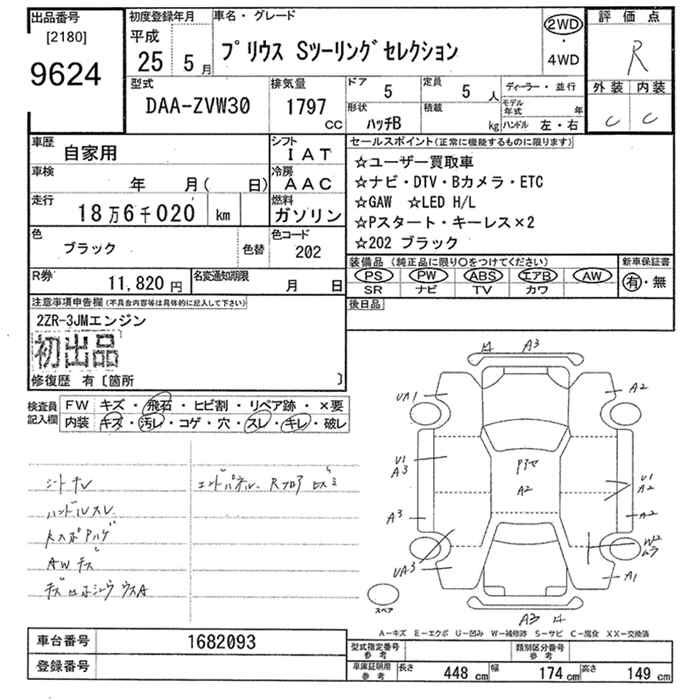 出品番号
[2180]
9624
初度登録年月
平成
25 5月
車名・グレード
プリウス Sツーリングセレクション
2WD
・
4WD
評価点
R
外装 内装
C C
型式
DAA-ZVW30
排気量
1797
cc
ドア
5
定員
5 人
形状
ハッチB
積載
kg
ディーラー・並行
モデル年式 年
ハンドル 左・右
車歴
自家用
シフト
IAT
車検
年 月( 日)
冷房
AAC
走行
18万6千020 km
燃料
ガソリン
色
ブラック
色替
色コード
202
R券
11,820 円
名変通知期限
月 日
セールスポイント(正常に機能するものに限ります)
☆ユーザー買取車
☆ナビ・DTV・Bカメラ・ETC
☆GAW ☆LED H/L
☆Pスタート・キーレス×2
☆202 ブラック
装備品(純正品に限り○をつけてください)
PS PW ABS エアB AW
SR ナビ TV カワ
新車保証書
有・無
後日品
注意事項申告欄(不具合内容等は具体的に記入して下さい)
2ZR-3JMエンジン
初出品
修復歴 有〔箇所 〕
検査員記入欄
FW キズ・飛石・ヒビ割・リペア跡・×要
内装 キズ・汚レ・コゲ・穴・スレ・キレ・破レ
シートスレ
ハンドルスレ
AWキズ
A3
UA1
A2
U1
A3
A2
U1
A2
A3
A2
W2
ムラ
UA3
A1
A3
スペア
A-キズ E-エクボ U-凹み W-補修跡 S-サビ C-腐食 XX-交換済
車台番号
1682093
登録番号
型式指定番号
参考
類別区分番号
参考
車庫証明用
参考
長さ 448 cm 幅 174 cm 高さ 149 cm